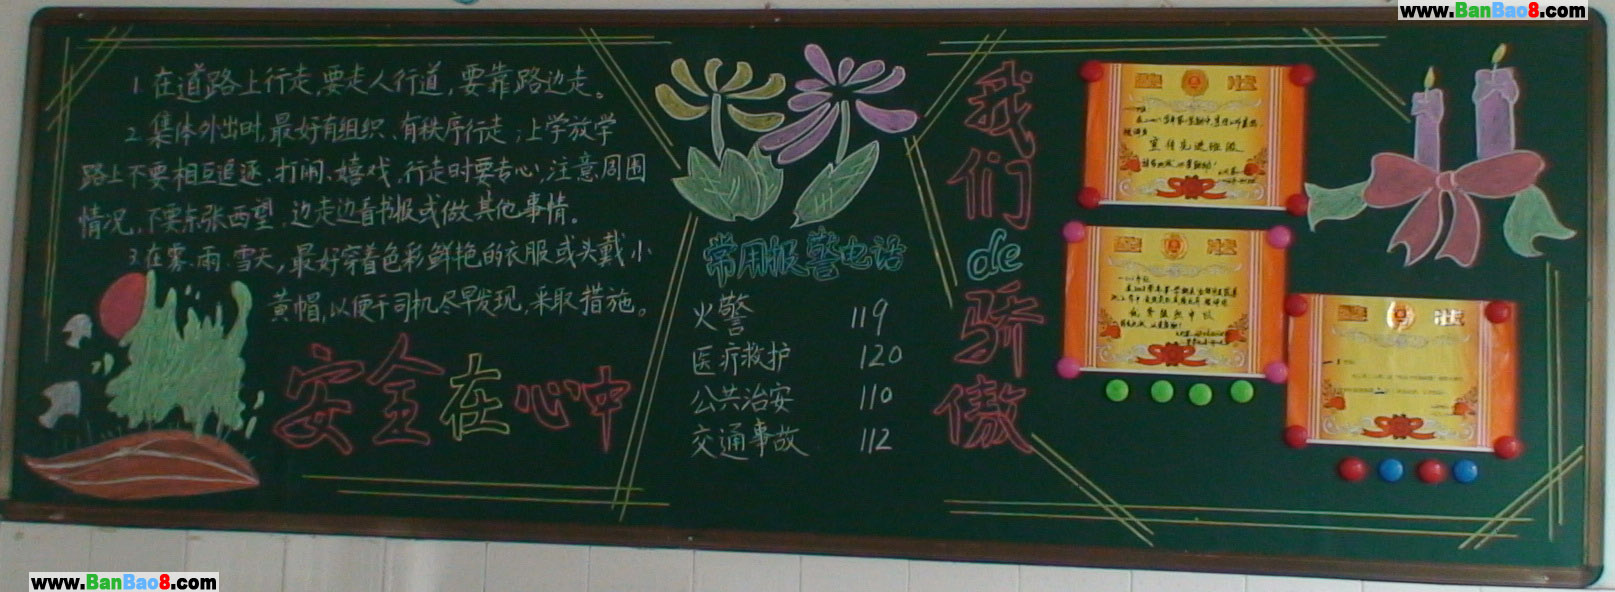 www.BanBao8.com
1.在道路上行走,要走人行道,要靠路边走。
2.集体外出时,最好有组织、有秩序行走;上学放学
路上不要相互追逐、打闹、嬉戏,行走时要专心,注意周围
情况,不要东张西望,边走边看书报或做其他事情。
3.在雾、雨、雪天,最好穿着色彩鲜艳的衣服或头戴小
黄帽,以便于司机尽早发现,采取措施。
安全在心中
常用报警电话
火警 119
医疗救护 120
公共治安 110
交通事故 112
我们de骄傲
奖状
奖状
奖状
www.BanBao8.com